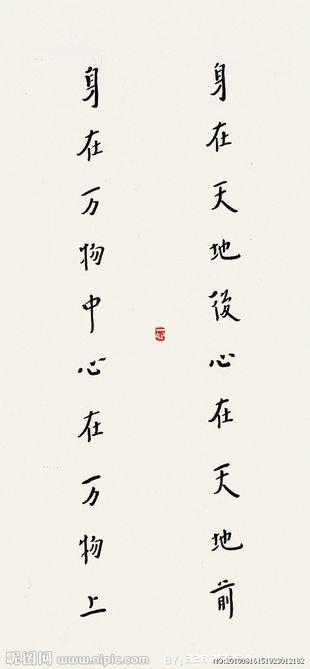 身在天地後心在天地前
身在万物中心在万物上
昵图网
www.nipic.com
NO:20100816151923012182